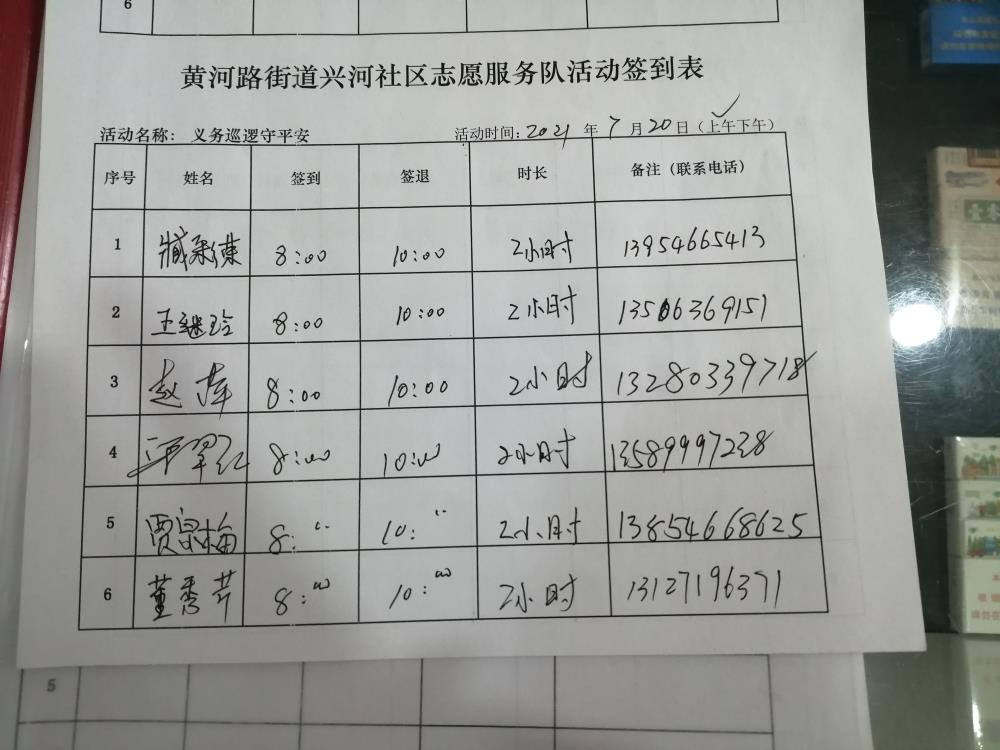 6
黄河路街道兴河社区志愿服务队活动签到表
活动名称: 义务巡逻守平安 活动时间: 2021 年 7 月 20 日 (上午下午)
序号 姓名 签到 签退 时长 备注 (联系电话)
1 8:00 10:00 2小时 13954665413
2 王继玲 8:00 10:00 2小时 13506369151
3 赵萍 8:00 10:00 2小时 13280339718
4 8:00 10:00 2小时 13589997238
5 贾泉梅 8:" 10:" 2小时 13854668625
6 董秀芹 8:00 10:00 2小时 13127196371
5